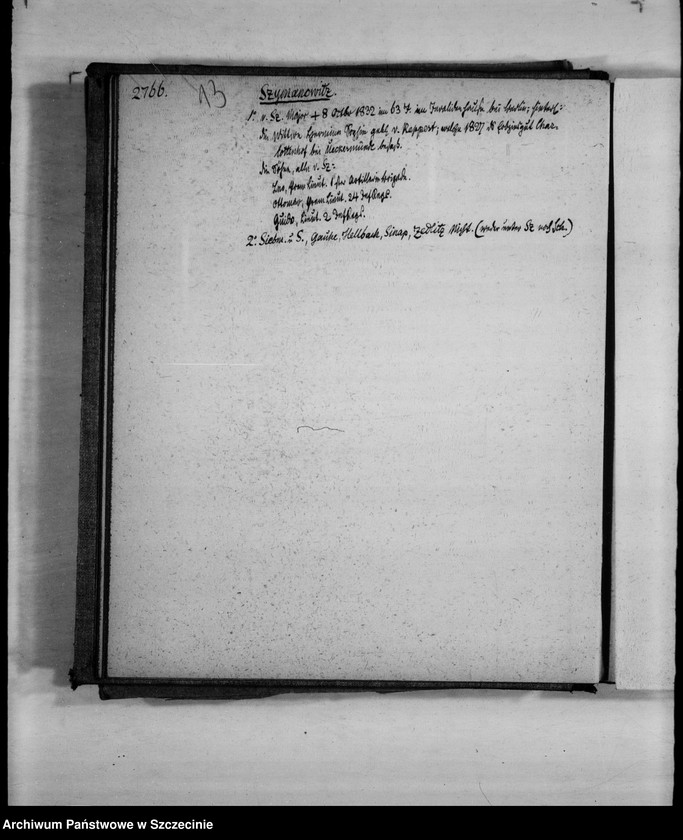 2766.
13
Szymanowitz.
1. v. Sz. Major + 8 Octbr 1832 im 63 J. im Invalidenhause bei Berlin; hinterl:
die Wittwe Hermine Sophie geb. v. Rapport, welche 1837 d Erbzinsgut Char-
lottenhof bei Ueckermünde besaß.
die Söhne, alle v. Sz:
Leo, Prem Lieut. 1ster Artilleriebrigade.
Ottomar, Prem Lieut. 24 InfRegt.
Guido, Lieut. 2 InfRegt.
2. Siebm. u. S., Gauhe, Hellbach, Sinap, Zedlitz Nicht. (weder unter Sz noch Sch.)
Archiwum Państwowe w Szczecinie